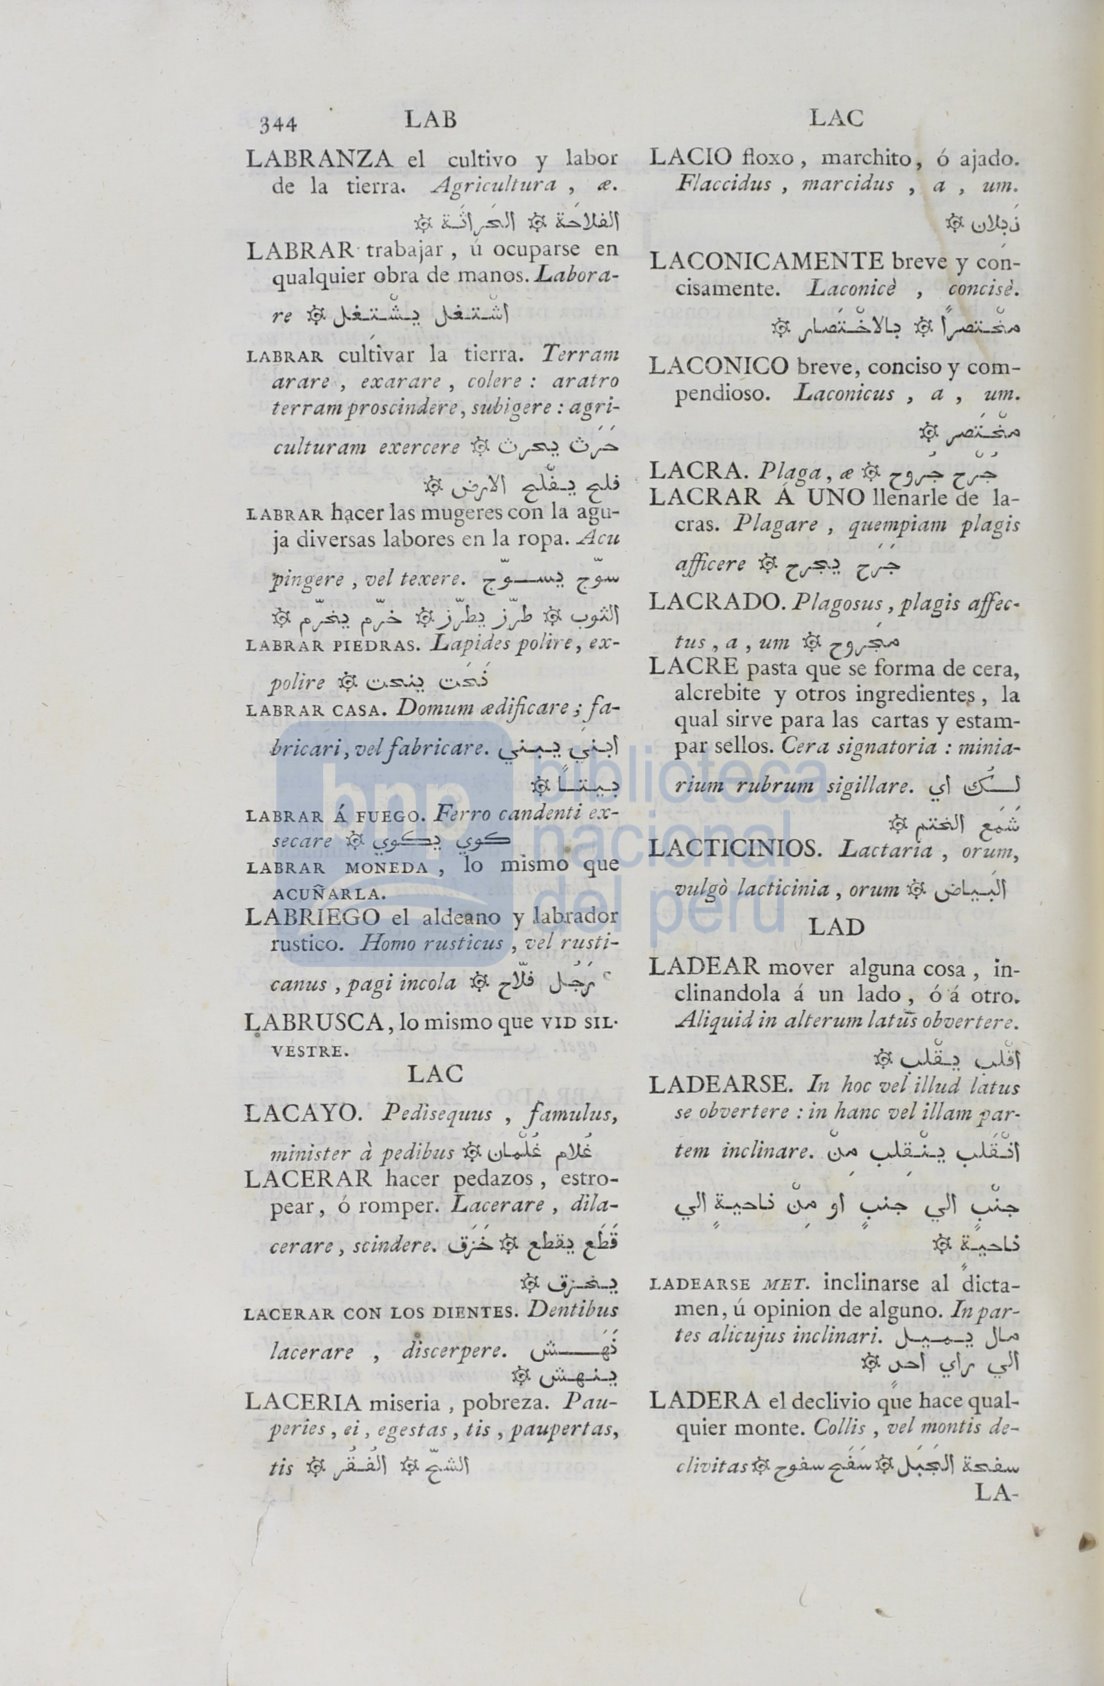 344 LAB
LABRANZA el cultivo y labor
de la tierra. Agricultura , æ.
الفلاحة ۞ الحَراثَة ۞
LABRAR trabajar , ú ocuparse en
qualquier obra de manos. Labora-
re ۞ اشْتغل يشْتغل
LABRAR cultivar la tierra. Terram
arare , exarare , colere : aratro
terram proscindere, subigere : agri-
culturam exercere ۞ حَرَث يحرث
فلح يفْلح الارض ۞
LABRAR hacer las mugeres con la agu-
ja diversas labores en la ropa. Acu
pingere , vel texere. سوّج يسوّج
الثوب ۞ طرّز يطرّز ۞ خرّم يخرّم ۞
LABRAR PIEDRAS. Lapides polire, ex-
polire ۞ نَحَت ينحت
LABRAR CASA. Domum ædificare ; fa-
bricari, vel fabricare. ابنَي يبني
بيتاً ۞
LABRAR Á FUEGO. Ferro candenti ex-
secare ۞ كوي يكوي
LABRAR MONEDA , lo mismo que
ACUÑARLA.
LABRIEGO el aldeano y labrador
rustico. Homo rusticus , vel rusti-
canus , pagi incola ۞ رَجُل فلّاح
LABRUSCA, lo mismo que VID SIL-
VESTRE.
LAC
LACAYO. Pedisequus , famulus,
minister à pedibus ۞ غُلام غُلْمان
LACERAR hacer pedazos , estro-
pear , ó romper. Lacerare , dila-
cerare, scindere. قَطَع يقطع ۞ خَزَق
يخزق ۞
LACERAR CON LOS DIENTES. Dentibus
lacerare , discerpere. نَهَش
ينهش ۞
LACERIA miseria , pobreza. Pau-
peries , ei , egestas , tis , paupertas,
tis ۞ الشحّ ۞ الفُقُر
LAC
LACIO floxo , marchito, ó ajado.
Flaccidus , marcidus , a , um.
ذَبِلان ۞
LACONICAMENTE breve y con-
cisamente. Laconicè , concisè.
مخْتصراً ۞ بالاخْتصار ۞
LACONICO breve, conciso y com-
pendioso. Laconicus , a , um.
مخْتَصر ۞
LACRA. Plaga, æ ۞ جُرْح جُروح
LACRAR Á UNO llenarle de la-
cras. Plagare , quempiam plagis
afficere ۞ جَرَح يجرح
LACRADO. Plagosus, plagis affec-
tus , a , um ۞ مجْروح
LACRE pasta que se forma de cera,
alcrebite y otros ingredientes , la
qual sirve para las cartas y estam-
par sellos. Cera signatoria : minia-
rium rubrum sigillare. لُك اي
شَمَع الختم ۞
LACTICINIOS. Lactaria , orum,
vulgò lacticinia , orum ۞ البَياض
LAD
LADEAR mover alguna cosa , in-
clinandola á un lado , ó á otro.
Aliquid in alterum latus obvertere.
اقْلب يقْلب ۞
LADEARSE. In hoc vel illud latus
se obvertere : in hanc vel illam par-
tem inclinare. انْقَلب ينْقلب مِنْ
جنْبٍ الي جنبٍ او مِنْ ناحيةٍ الي
ناحيةٍ ۞
LADEARSE MET. inclinarse al dicta-
men, ú opinion de alguno. In par-
tes alicujus inclinari. مال يميل
الي راي احدٍ ۞
LADERA el declivio que hace qual-
quier monte. Collis , vel montis de-
clivitas ۞ سفحة الجَبَل ۞ سَفَح سفوح
LA-
bnp biblioteca
nacional
del perú